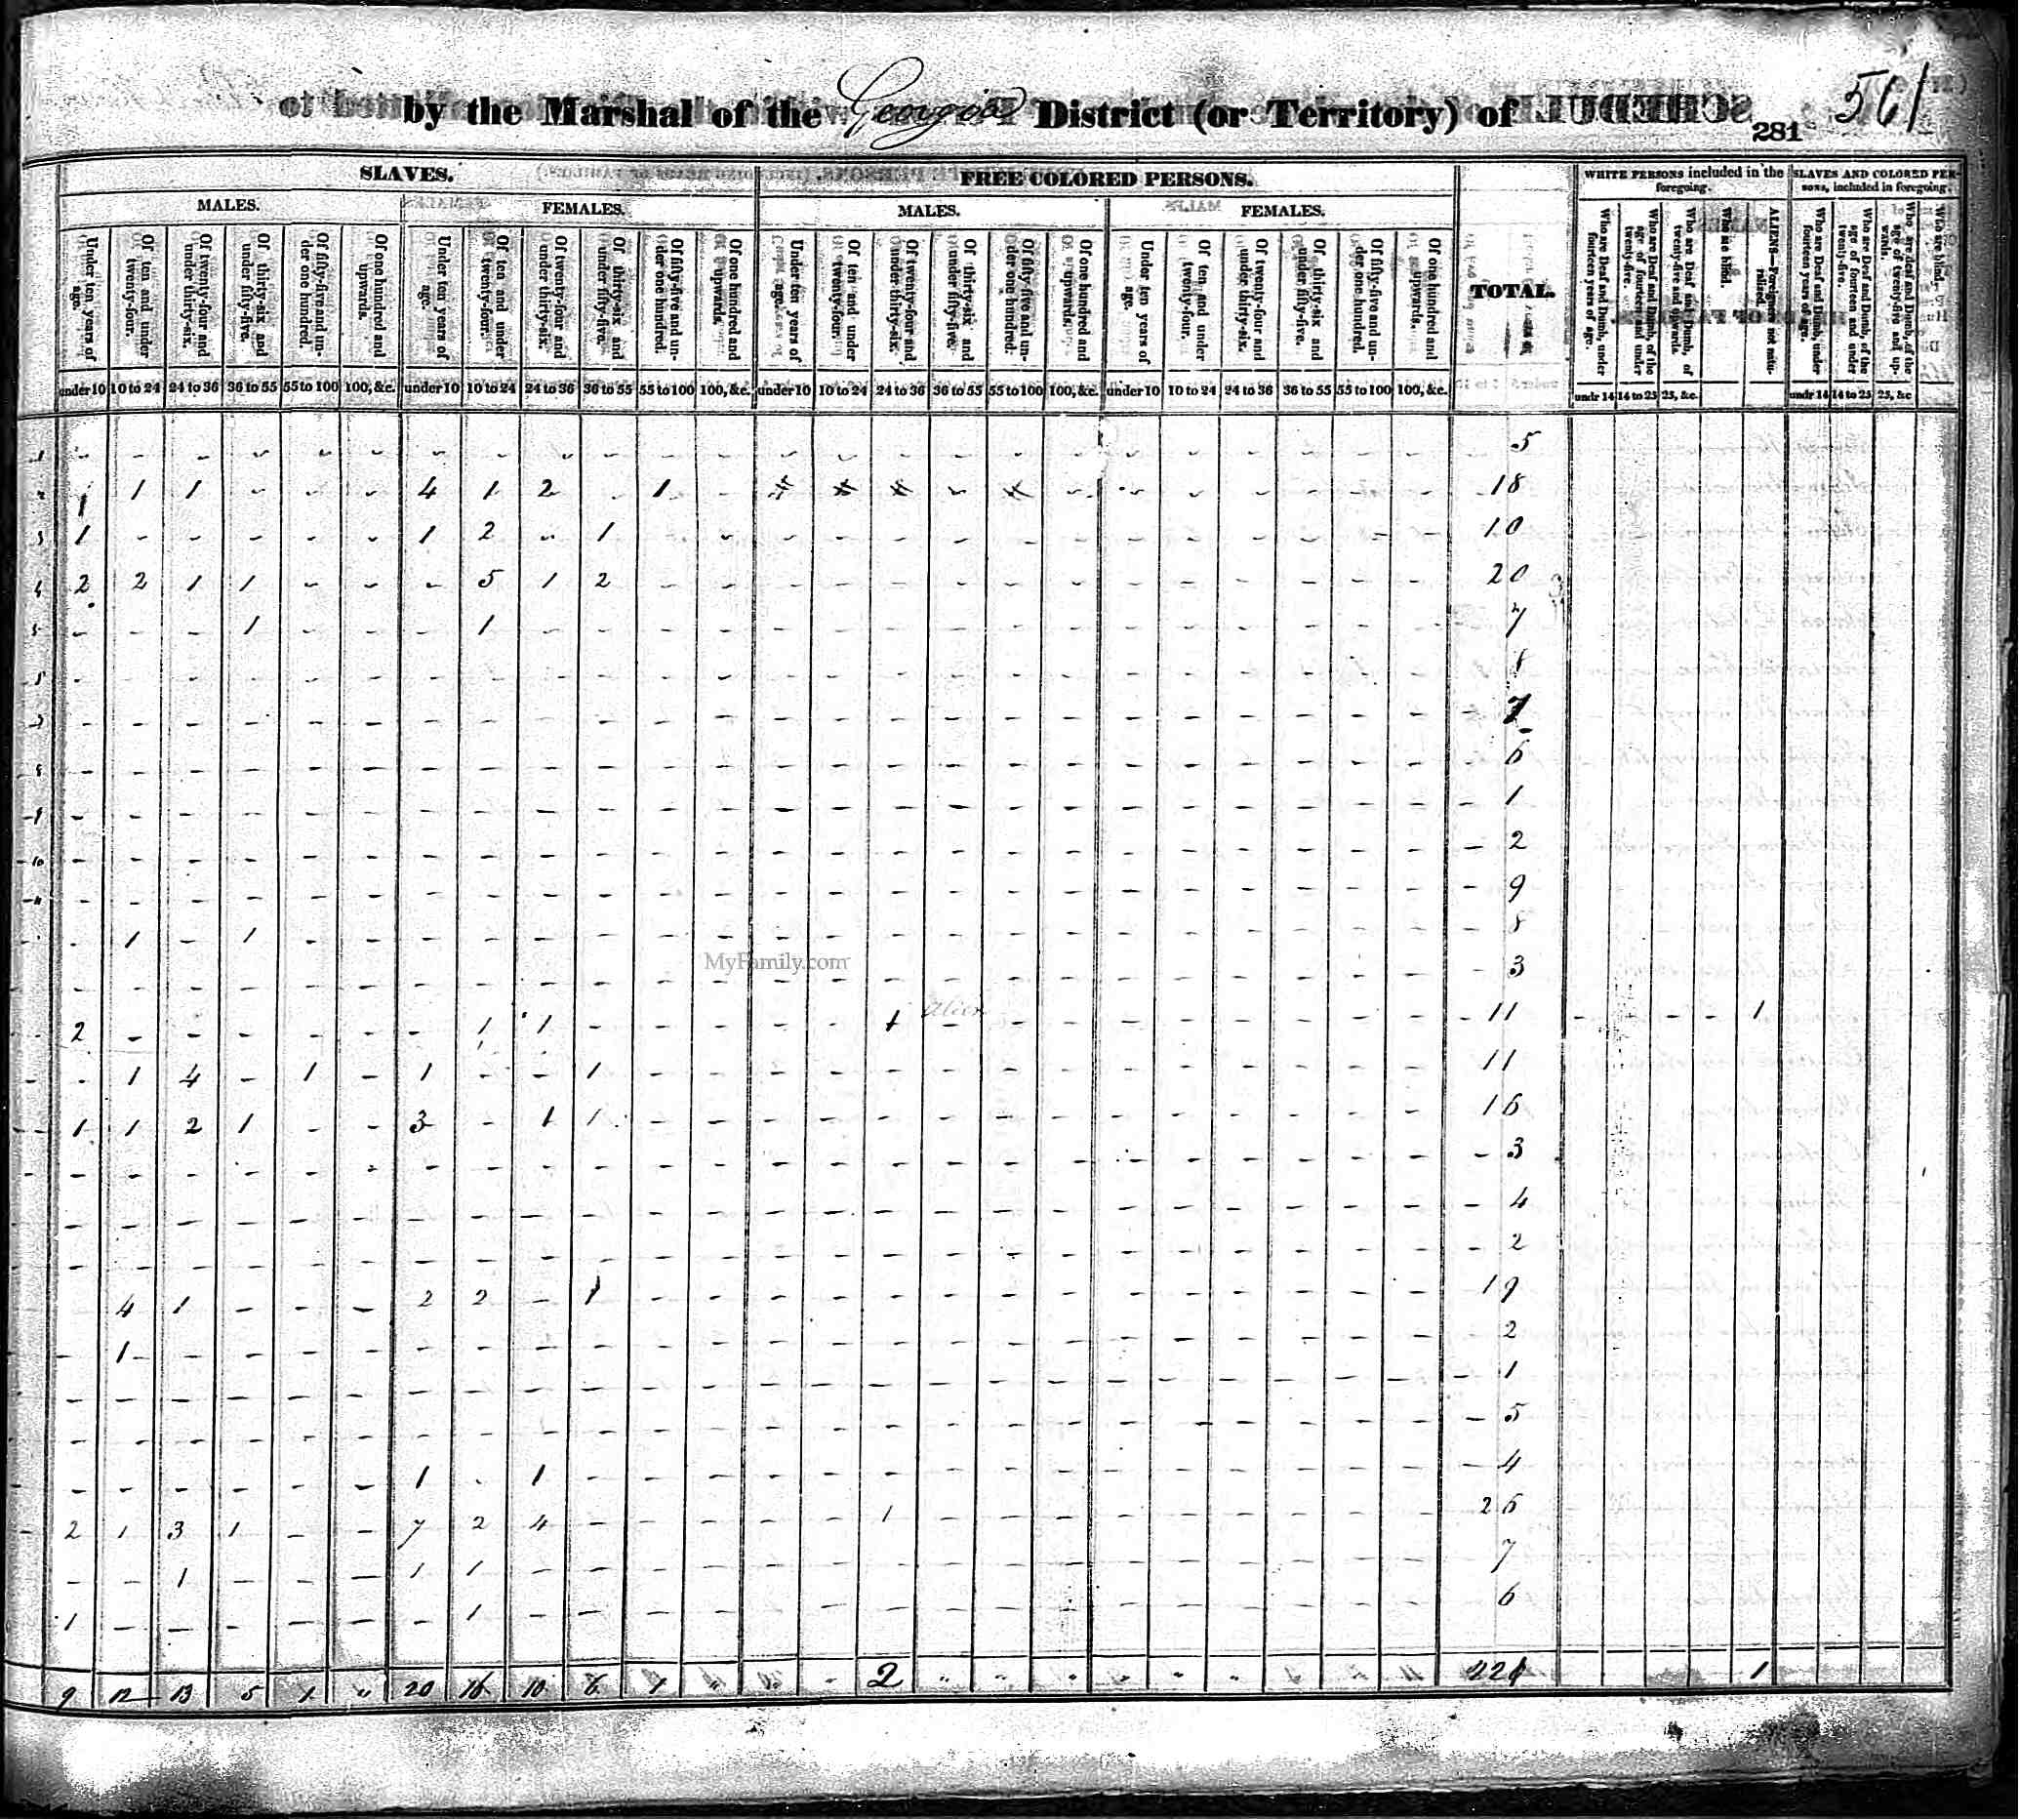 by the Marshal of the Georgia District (or Territory) of
281
561
SLAVES. FREE COLORED PERSONS. TOTAL. WHITE PERSONS included in the foregoing. SLAVES AND COLORED PERSONS, included in foregoing.
MALES. FEMALES. MALES. FEMALES.
Under ten years of age. Of ten and under twenty-four. Of twenty-four and under thirty-six. Of thirty-six and under fifty-five. Of fifty-five and under one hundred. Of one hundred and upwards. Under ten years of age. Of ten and under twenty-four. Of twenty-four and under thirty-six. Of thirty-six and under fifty-five. Of fifty-five and under one hundred. Of one hundred and upwards. Under ten years of age. Of ten and under twenty-four. Of twenty-four and under thirty-six. Of thirty-six and under fifty-five. Of fifty-five and under one hundred. Of one hundred and upwards. Under ten years of age. Of ten and under twenty-four. Of twenty-four and under thirty-six. Of thirty-six and under fifty-five. Of fifty-five and under one hundred. Of one hundred and upwards. Who are Deaf and Dumb, under fourteen years of age. Who are Deaf and Dumb, of the age of fourteen and under twenty-five. Who are Deaf and Dumb, of twenty-five and upwards. Who are blind. ALIENS—Foreigners not naturalized. Who are Deaf and Dumb, under fourteen years of age. Who are Deaf and Dumb, of the age of fourteen and under twenty-five. Who are deaf and Dumb, of the age of twenty-five and upwards. Who are blind.
under 10 10 to 24 24 to 36 36 to 55 55 to 100 100, &c. under 10 10 to 24 24 to 36 36 to 55 55 to 100 100, &c. under 10 10 to 24 24 to 36 36 to 55 55 to 100 100, &c. under 10 10 to 24 24 to 36 36 to 55 55 to 100 100, &c. undr 14 14 to 25 25, &c. undr 14 14 to 25 25, &c
1 5
2 1 1 1 4 1 2 1 18
3 1 1 2 1 10
4 2 2 1 1 5 1 2 20
5 1 1 7
8
7
8 6
9 1
10 2
11 9
1 1 8
MyFamily.com
3
2 1 1 1 Alien 11 1
1 4 1 1 1 11
1 1 2 1 3 1 1 16
3
4
2
4 1 2 2 1 19
1 2
1
5
1 1 4
2 1 3 1 7 2 4 1 26
1 1 1 7
1 1 6
9 12 13 5 1 " 20 16 10 6 1 " 2 221 1